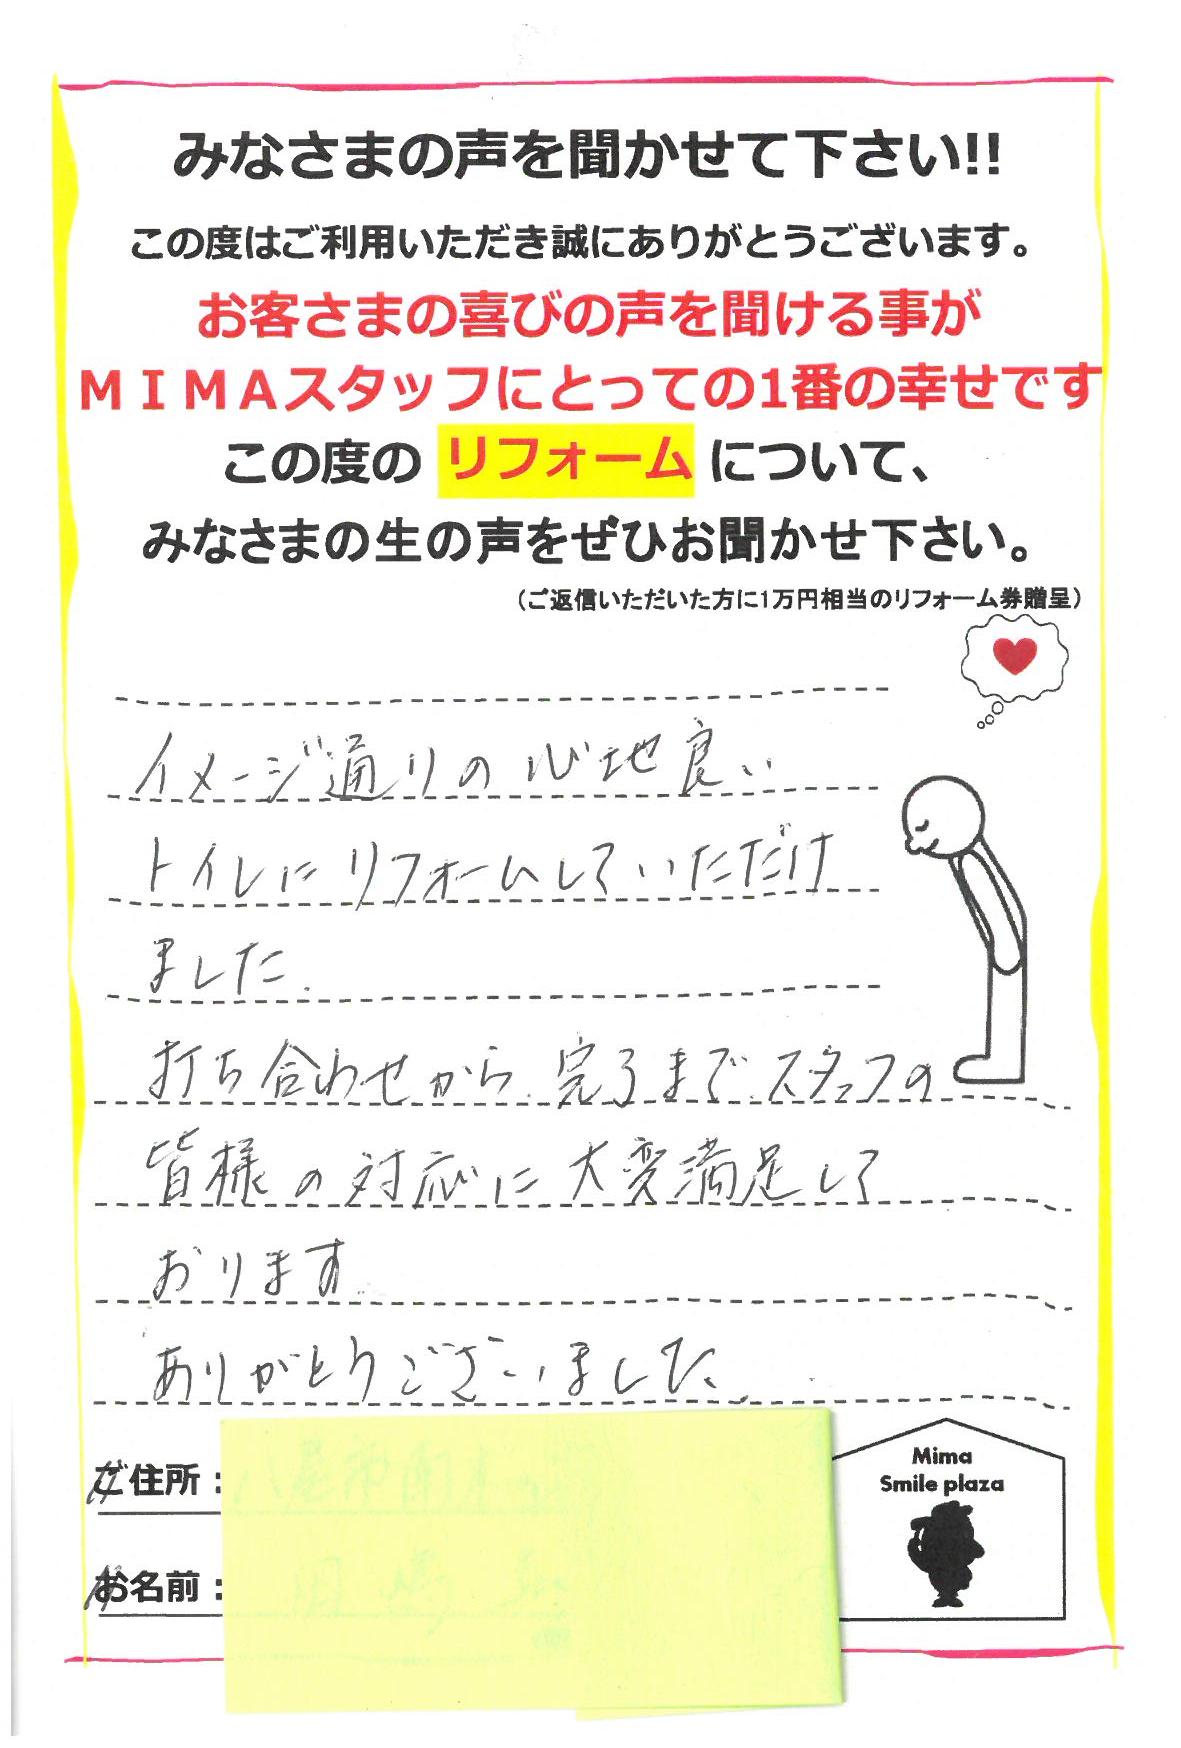 みなさまの声を聞かせて下さい!!
この度はご利用いただき誠にありがとうございます。
お客さまの喜びの声を聞ける事が
ＭＩＭＡスタッフにとっての1番の幸せです
この度の リフォーム について、
みなさまの生の声をぜひお聞かせ下さい。
（ご返信いただいた方に1万円相当のリフォーム券贈呈）
イメージ通りの心地良い
トイレにリフォームしていただけ
ました.
打ち合わせから完了までスタッフの
皆様の対応に大変満足して
おります
ありがとうございました.
ご住所：
お名前：
Mima
Smile plaza